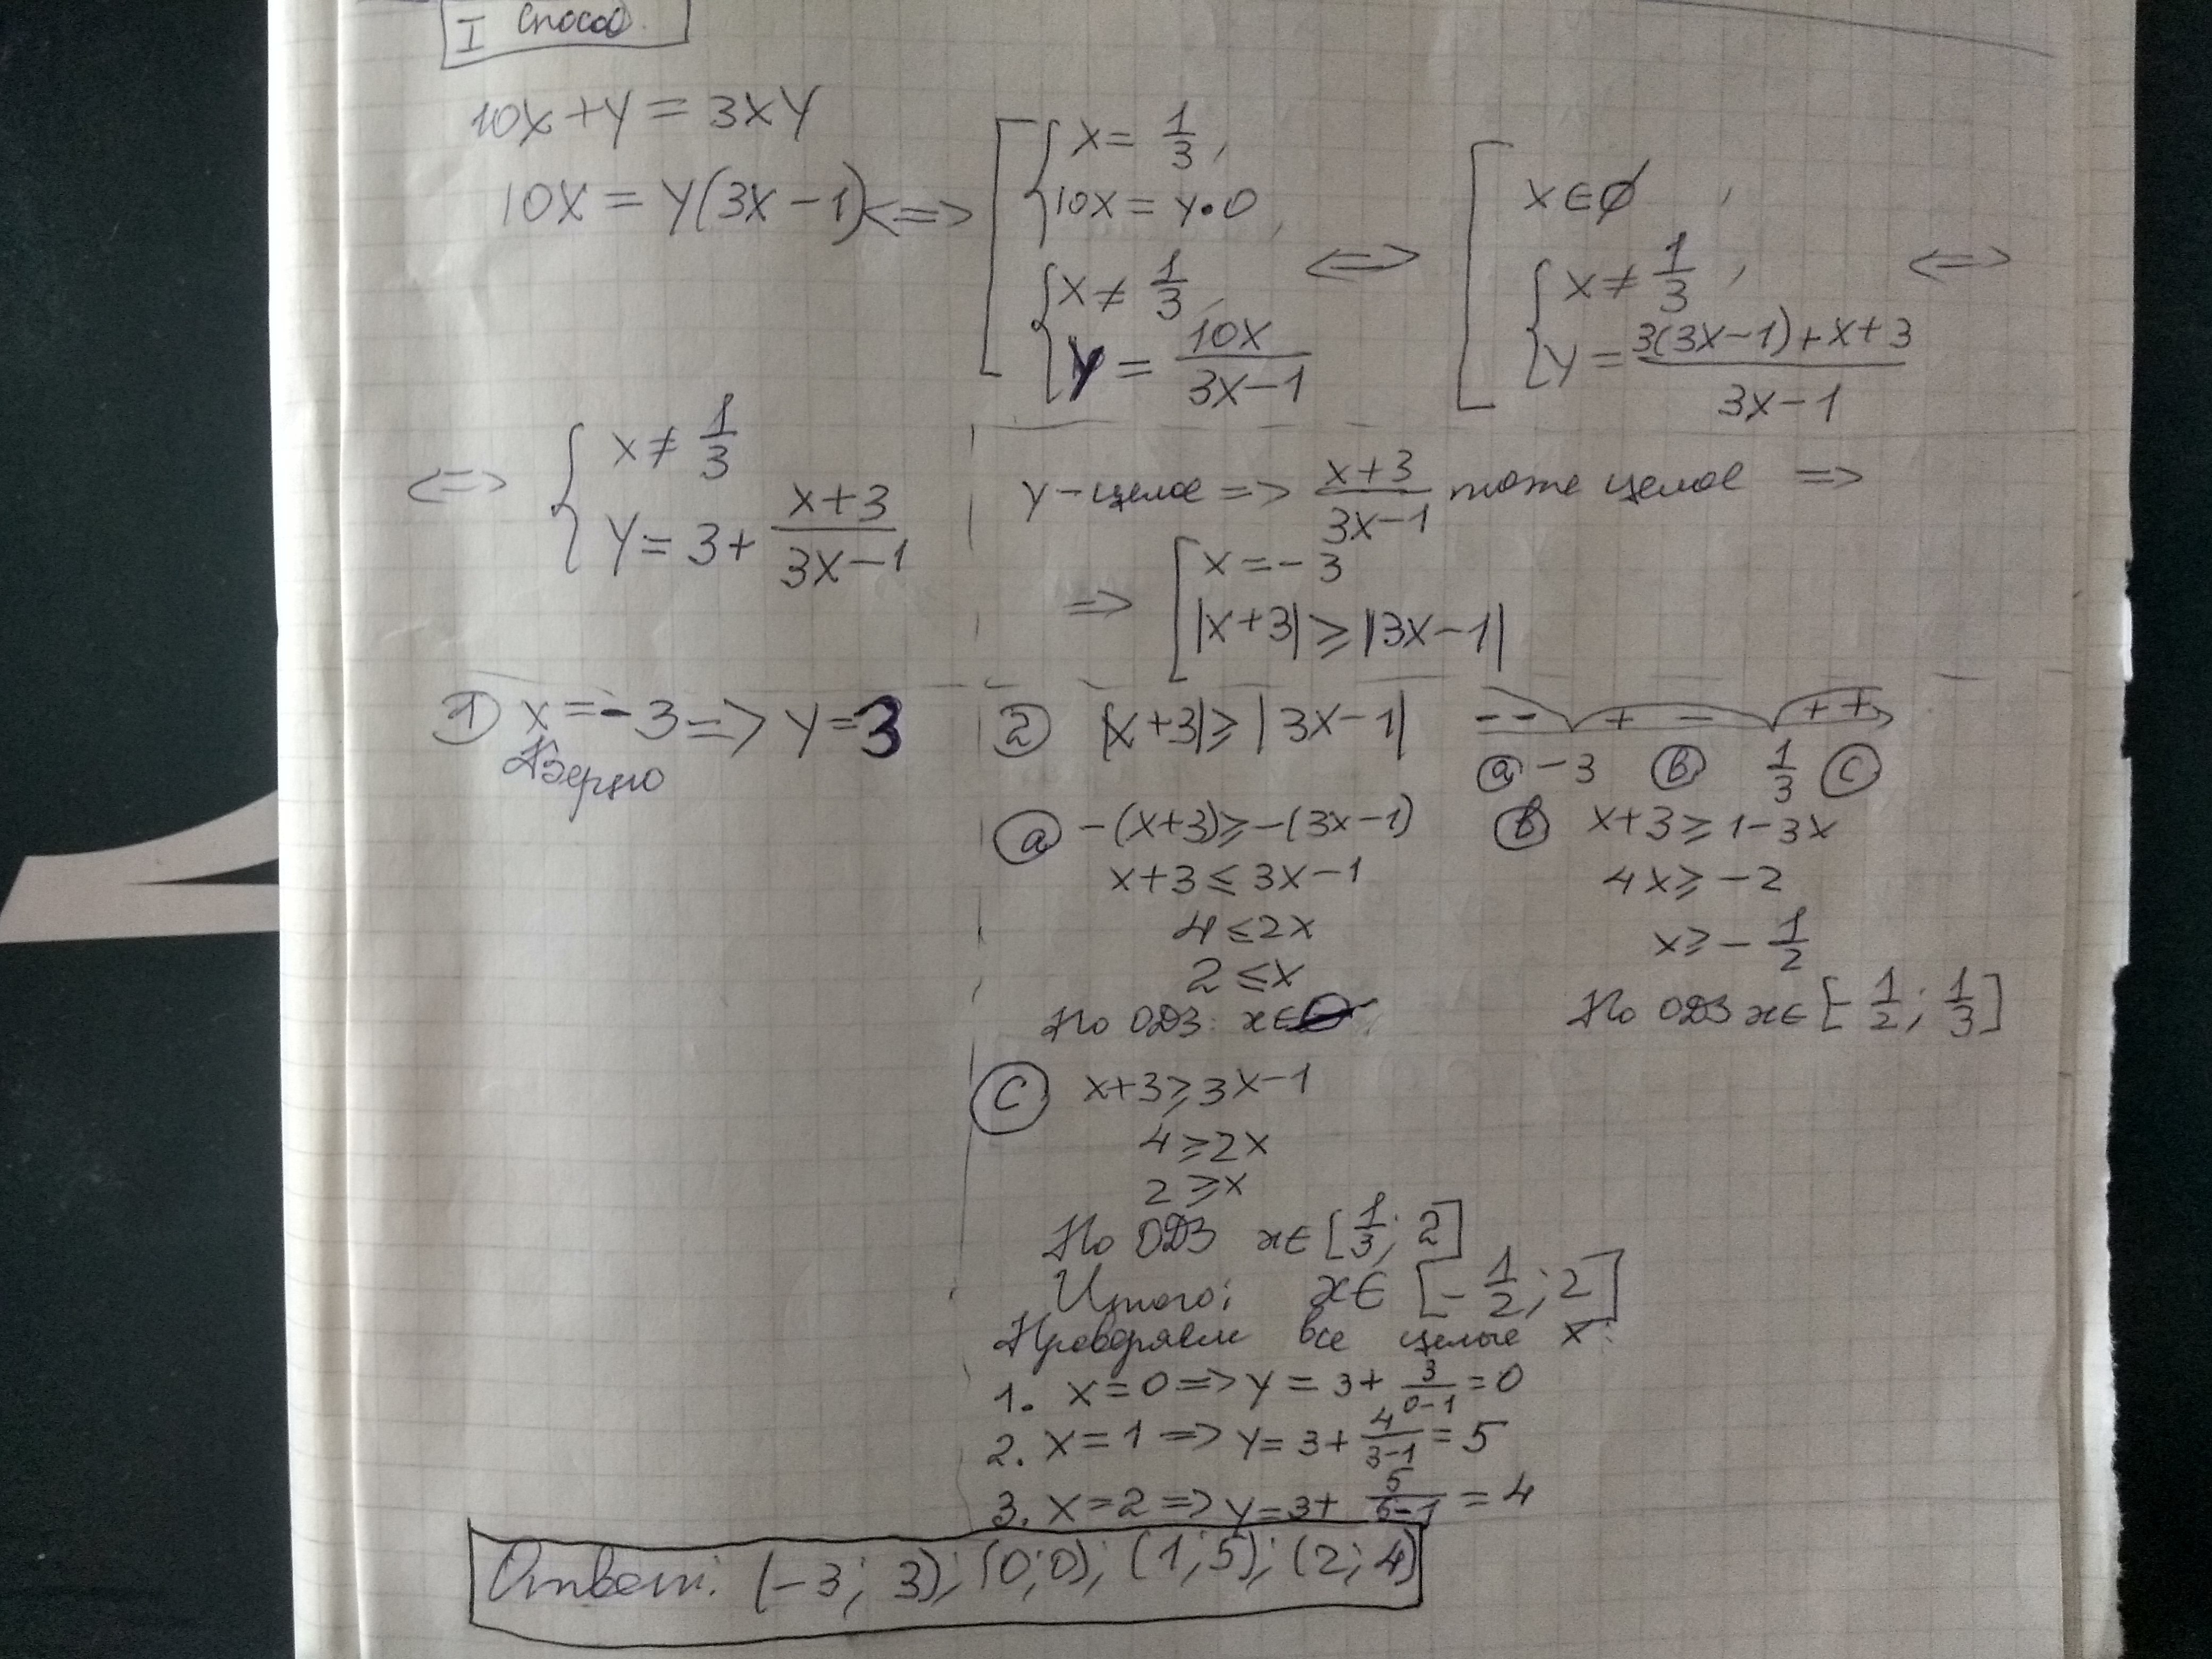 I способ.
10x + y = 3xy
10x = y(3x − 1) <=>
[ { x = 1/3,
10x = y•0,
{ x ≠ 1/3,
y = 10x/(3x−1)
<=>
[ x ∈ ∅,
{ x ≠ 1/3,
y = (3(3x−1)+x+3)/(3x−1)
<=>
<=> { x ≠ 1/3
y = 3 + (x+3)/(3x−1)
y – целое => (x+3)/(3x−1) тоже целое =>
=> [ x = −3
|x+3| ⩾ |3x−1|
① x = −3 => y = 3
Верно
② |x+3| ⩾ |3x−1|
− − + − + +
ⓐ −3 ⓑ 1/3 ⓒ
ⓐ −(x+3) ⩾ −(3x−1)
x+3 ⩽ 3x−1
4 ⩽ 2x
2 ⩽ x
По ОДЗ: x ∈ ∅
ⓑ x+3 ⩾ 1−3x
4x ⩾ −2
x ⩾ −1/2
По ОДЗ x ∈ [−1/2; 1/3]
ⓒ x+3 ⩾ 3x−1
4 ⩾ 2x
2 ⩾ x
По ОДЗ x ∈ [1/3; 2]
Итого: x ∈ [−1/2; 2]
Проверяем все целые x:
1. x = 0 => y = 3 + 3/(0−1) = 0
2. x = 1 => y = 3 + 4/(3−1) = 5
3. x = 2 => y = 3 + 5/(6−1) = 4
Ответ: (−3; 3); (0; 0); (1; 5); (2; 4)